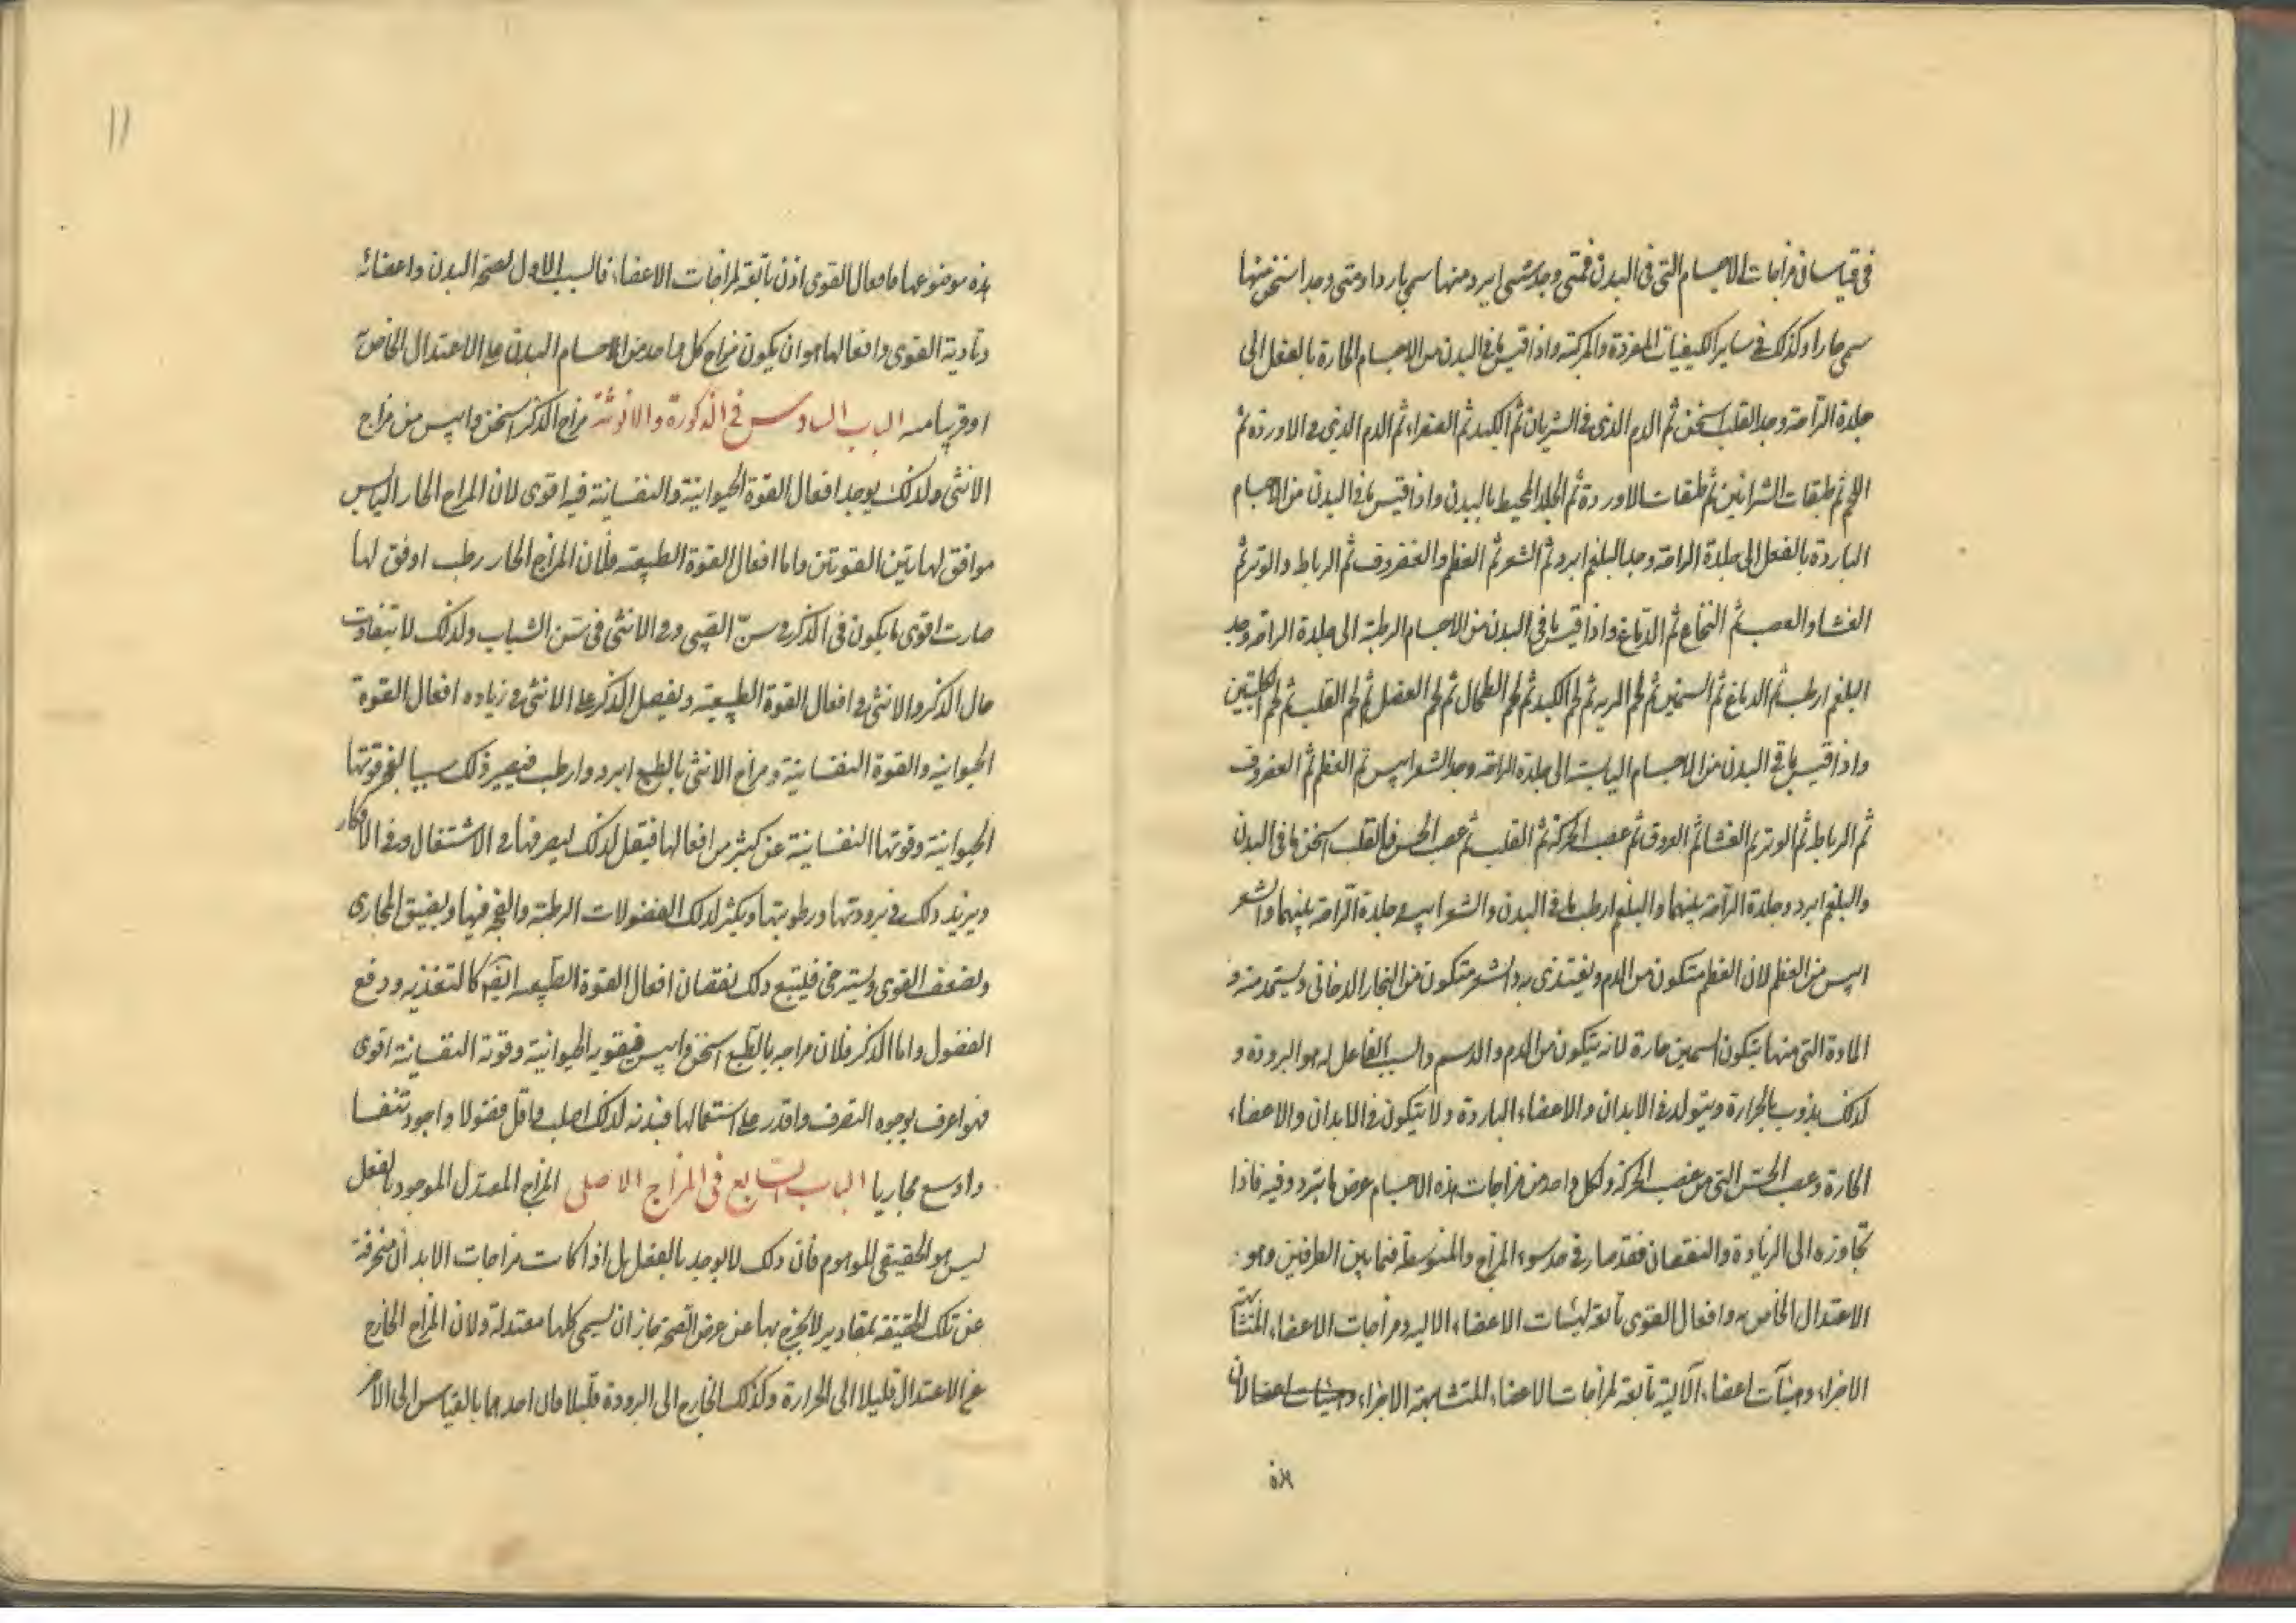 في قياسات مزاجات الاجسام التي في البدن فمتى وجد شيء ابرد منها سمي باردا ومتى وجد اسخن منها
سمي حارا وكذلك في ساير الكيفيات المفردة والمركبة واذا قيس ما في البدن من الاجسام الحارة بالفعل الى
جلدة الراحة وجد القلب اسخن ثم الدم الذي في الشريان ثم الكبد ثم الصفراء ثم الدم الذي في الاوردة ثم
اللحم ثم طبقات الشرايين ثم طبقات الاوردة ثم الجلد المحيط بالبدن واذا قيس ما في البدن من الاجسام
الباردة بالفعل الى جلدة الراحة وجد البلغم ابرد ثم الشعر ثم العظم والغضروف ثم الرباط والوتر ثم
الغشا والعصب ثم النخاع ثم الدماغ واذا قيس ما في البدن من الاجسام الرطبة الى جلدة الراحة وجد
البلغم ارطب ثم الدماغ ثم السمين ثم لحم الريه ثم لحم الكبد ثم لحم الطحال ثم لحم العضل ثم لحم القلب ثم لحم الكليتين
واذا قيس ما في البدن من الاجسام اليابسة الى جلدة الراحة وجد الشعر ايبس ثم العظم ثم الغضروف
ثم الرباط ثم الوتر ثم الغشا ثم العروق ثم عصب الحركة ثم القلب ثم عصب الحس فالقلب اسخن ما في البدن
والبلغم ابرد وجلدة الراحة بينهما والبلغم ارطب ما في البدن والشعر ايبس وجلدة الراحة بينهما والشعر
ايبس من العظم لان العظم متكون من الدم ويغتذي به والشعر متكون من البخار الدخاني ويستمد منه و
المادة التي منها يتكون السمين حارة لانه يتكون من الدم والدسم والسبب الفاعل له هو البرودة و
لذلك يذوب بالحرارة ويتولد في الابدان والاعضاء الباردة ولا يتكون في الابدان والاعضاء
الحارة وعصب الحس التي من عصب الحركة ولكل واحد من مزاجات هذه الاجسام عرض ما يتردد فيه فاذا
تجاوزه الى الزيادة والنقصان فقد صار في حد سوء المزاج والمتوسط فيما بين الطرفين وهو
الاعتدال الخاص به وافعال القوى تابعة لهيئات الاعضاء الاليه ومزاجات الاعضاء المتشابهة
الاجزاء وهيئات اعضاء الآلية تابعة لمزاجات الاعضاء المتشابهة الاجزاء وهيئات اعضا لان
هذه
11
هذه موضوعها فافعال القوى اذن تابعة لمزاجات الاعضاء فالسبب الاول لصحة البدن واعضائه
وتادية القوى وافعالها هو ان يكون مزاج كل واحد من اجسام البدن على الاعتدال الخاص
او قريبا منه الباب السادس في الذكورة والانوثة مزاج الذكر اسخن وايبس من مزاج
الانثى ولذلك يوجد افعال القوة الحيوانية والنفسانية فيه اقوى لان المزاج الحار اليابس
موافق لهاتين القوتين واما افعال القوة الطبيعيه فلان المزاج الحار رطب اوفق لها
صارت اقوى ما يكون في الذكر في سن الصبي وفي الانثى في سن الشباب ولذلك لا يتفاوت
حال الذكر والانثى في افعال القوة الطبيعية ويفضل الذكر على الانثى في زياده افعال القوة
الحيوانيه والقوة النفسانية ومزاج الانثى بالطبع ابرد وارطب فيصير ذلك سببا لعجز قوتها
الحيوانية وقوتها النفسانية عن كثير من افعالها فيقل لذلك تصرفها في الاشتغال وفي الافكار
ويزيد ذلك في برودتها ورطوبتها ويكثر لذلك الفضولات الرطبة والفجة فيها ويضيق المجاري
ويضعف القوى ويسترخي فليتبع ذلك نقصان افعال القوة الطبيعيه ايضا كالتغذيه ودفع
الفضول واما الذكر فلان مزاجه بالطبع اسخن وايبس فيصير قوته الحيوانية وقوته النفسانية اقوى
فهو اعرف بوجوه التصرف واقدر على استعمالها فبدنه لذلك اصلب واقل فضولا واجود تنفسا
واوسع مجاريا الباب السابع في المزاج الاصلي المزاج المعتدل الموجود بالفعل
ليس هو الحقيقي الموهوم فان ذلك لا يوجد بالفعل بل اذا كانت مزاجات الابدان منحرفة
عن تلك الحقيقه بمقادير لا يخرج بها عن عرض الصحة جاز ان يسمى كلها معتدلة ولان المزاج الخارج
عن الاعتدال قليلا الى الحرارة وكذلك الخارج الى البرودة قليلا مال احدهما بالقياس الى الاخر